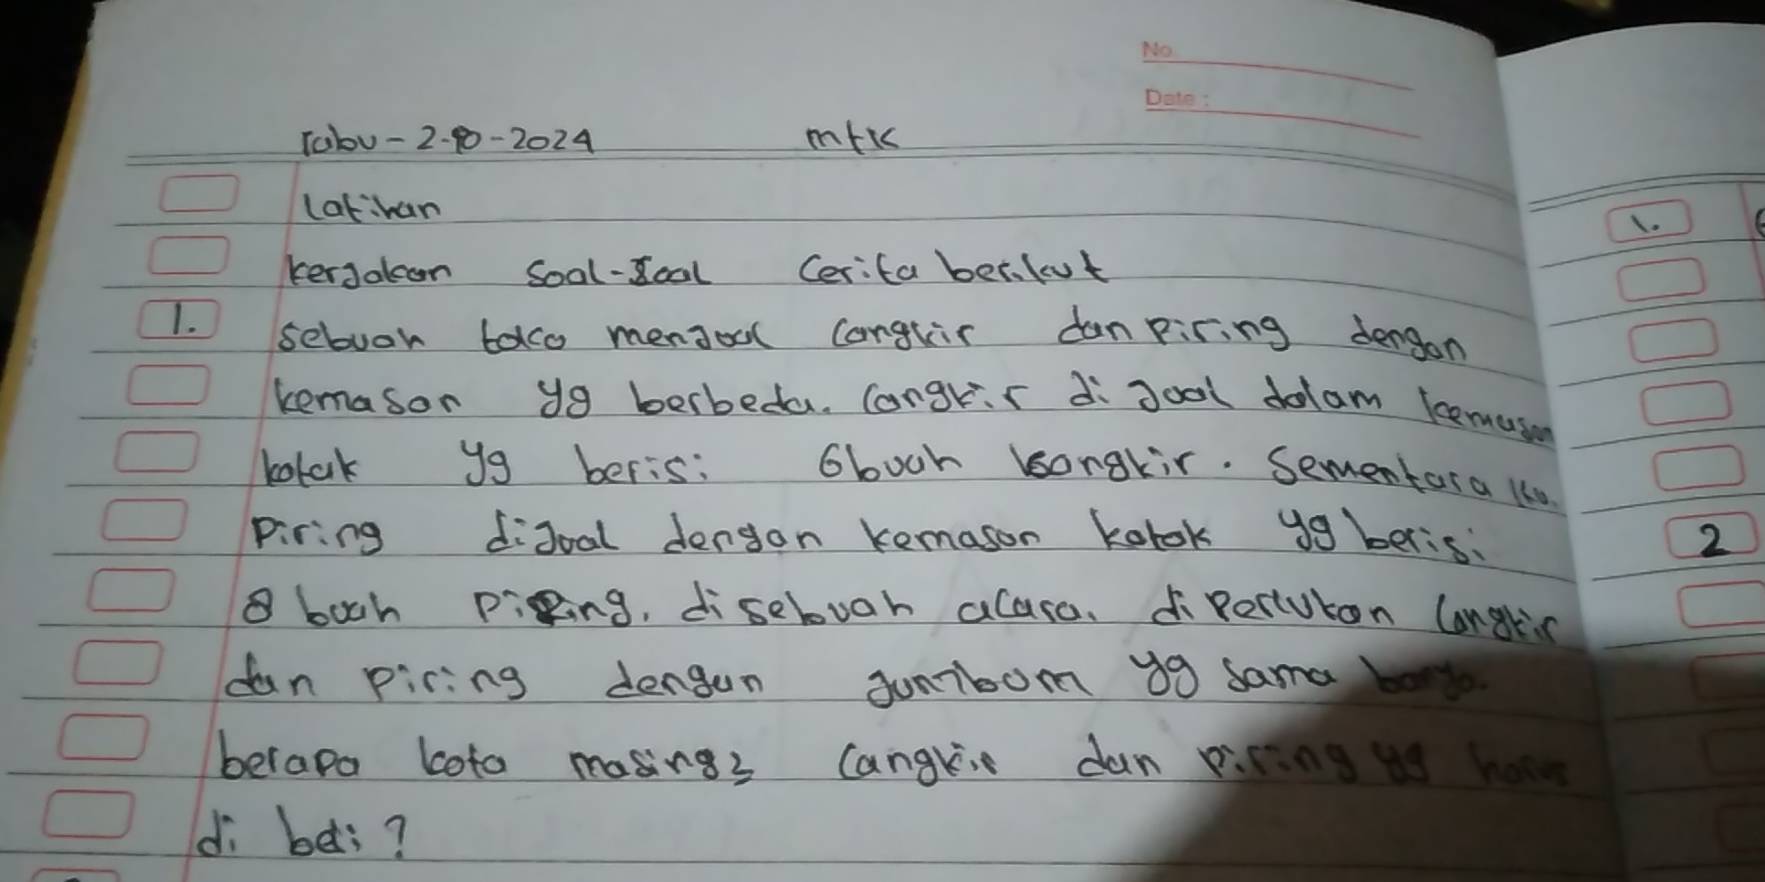 No.
Date:
rabu - 2-10-2024 mtk
latihan
kerjakan soal-soal cerita berikut
1. sebuah toko menjual cangkir dan piring dengan
kemasan yg berbeda. cangkir di jual dalam kemasan
kotak yg berisi 6 buah kangkir. Sementara itu.
piring dijual dengan kemasan kotak yg berisi
8 buah piring. di sebuah acara. di perlukan cangkir
dan piring dengan yg sama
berapa kota masing2 cangkir dan piring yg harus
di beli?
1.
2